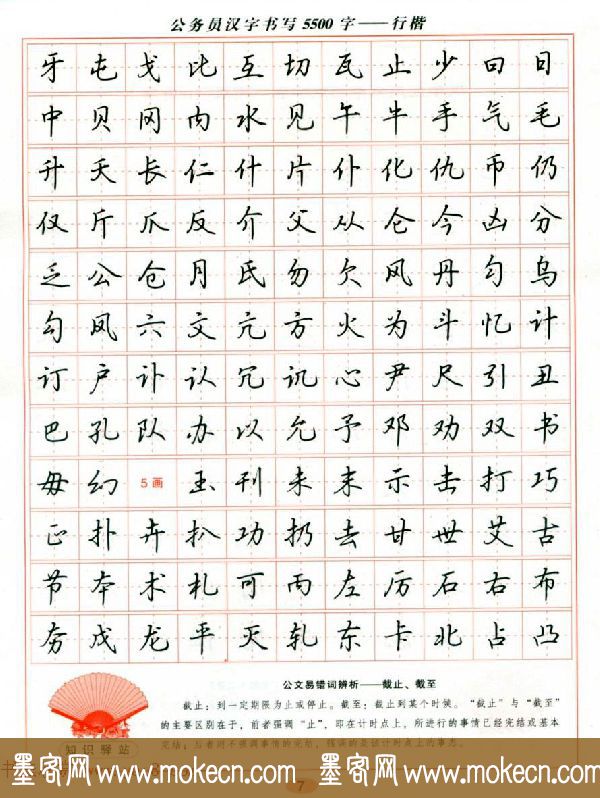 公务员汉字书写5500字——行楷
牙屯戈比互切瓦止少曰日
中贝冈内水见午牛手气毛
升夭长仁什片仆化仇币仍
仅斤爪反介父从仑今凶分
乏公仓月氏勿欠风丹匀乌
勾凤六文亢方火为斗忆计
订户讣认冗讥心尹尺引丑
巴孔队办以允予邓劝双书
毋幻5画玉刊未末示击打巧
正扑卉扒功扔去甘世艾古
节本术札可丙左厉石右布
夯戊龙平灭轧东卡北占凸
公文易错词辨析——截止、截至
截止：到一定期限为止或停止。截至：截止到某个时候。“截止”与“截至”
的主要区别在于，前者强调“止”，即在计时点上，所进行的事情已经完结或基本
完结；后者则不强调事情的完结，
知识驿站
墨客网 www.mokecn.com 墨客网 www.mokecn.com
7